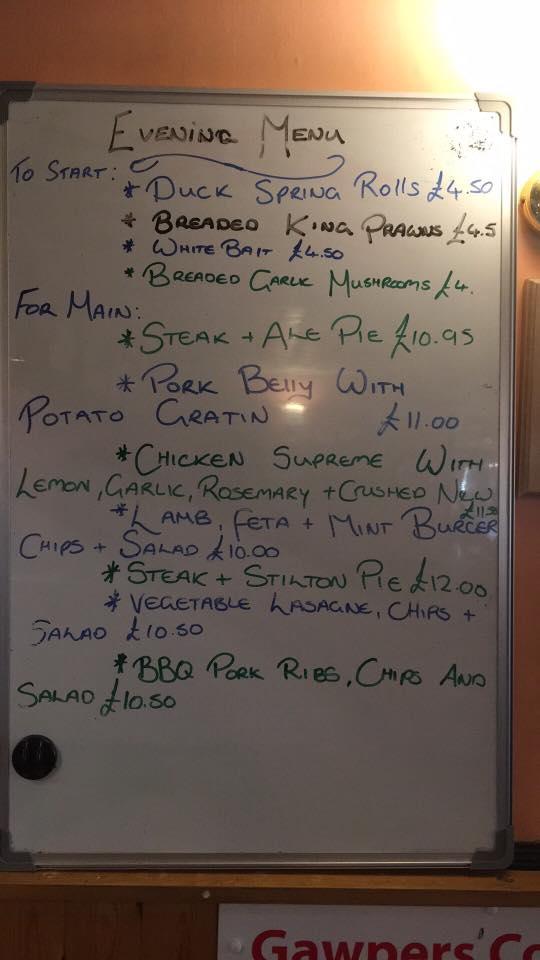 EVENING MENU
TO START:
* DUCK SPRING ROLLS £4.50
* BREADED KING PRAWNS £4.5
* WHITE BAIT £4.50
* BREADED GARLIC MUSHROOMS £4.
FOR MAIN:
* STEAK + ALE PIE £10.95
* PORK BELLY WITH
POTATO GRATIN £11.00
* CHICKEN SUPREME WITH
LEMON, GARLIC, ROSEMARY + CRUSHED NEW
£11.50
* LAMB, FETA + MINT BURGER
CHIPS + SALAD £10.00
* STEAK + STILTON PIE £12.00
* VEGETABLE LASAGNE, CHIPS +
SALAD £10.50
* BBQ PORK RIBS, CHIPS AND
SALAD £10.50
Gawpers' Co